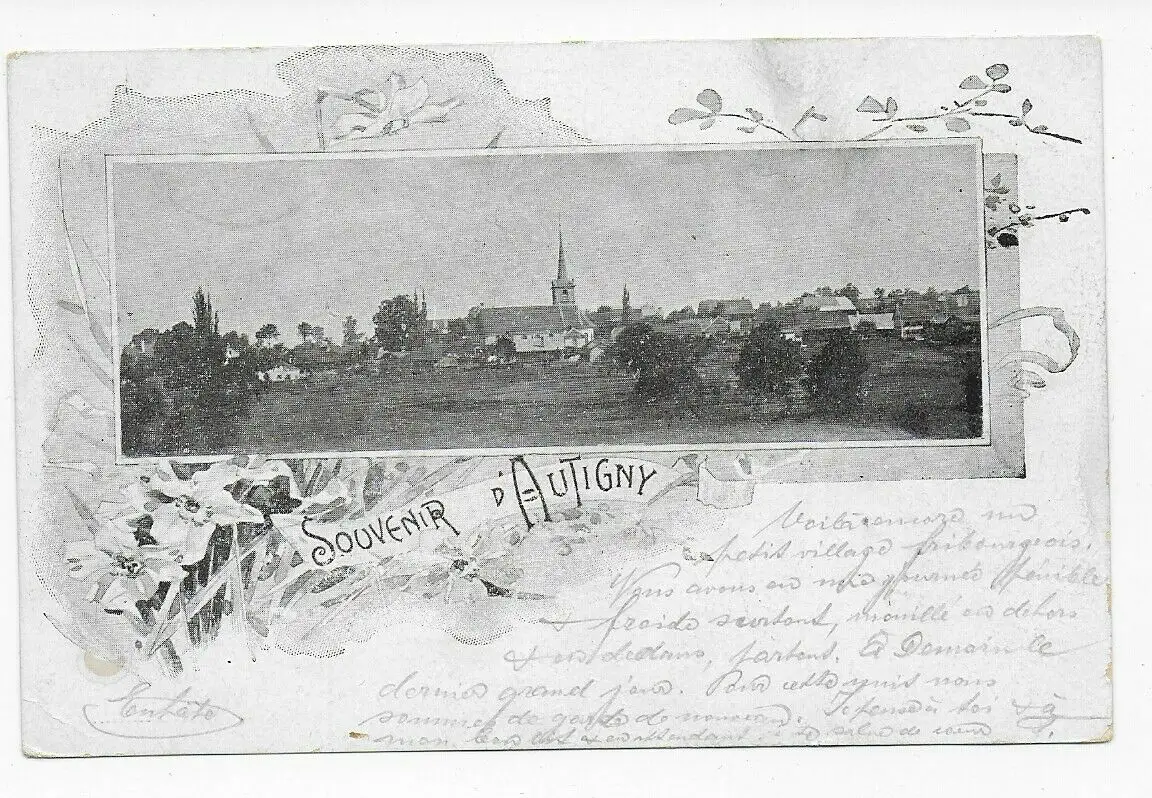 SOUVENIR D'AUTIGNY
Voilà encore un
petit village fribourgeois.
Nous avons eu une journée pénible
froide surtout, mouillé en dehors
& en dedans, partout. À Demain le
dernier grand jour. Pour cette nuit nous
sommes de garde de nouveau. Je pense à toi & à
mon en attendant je te salue de cœur